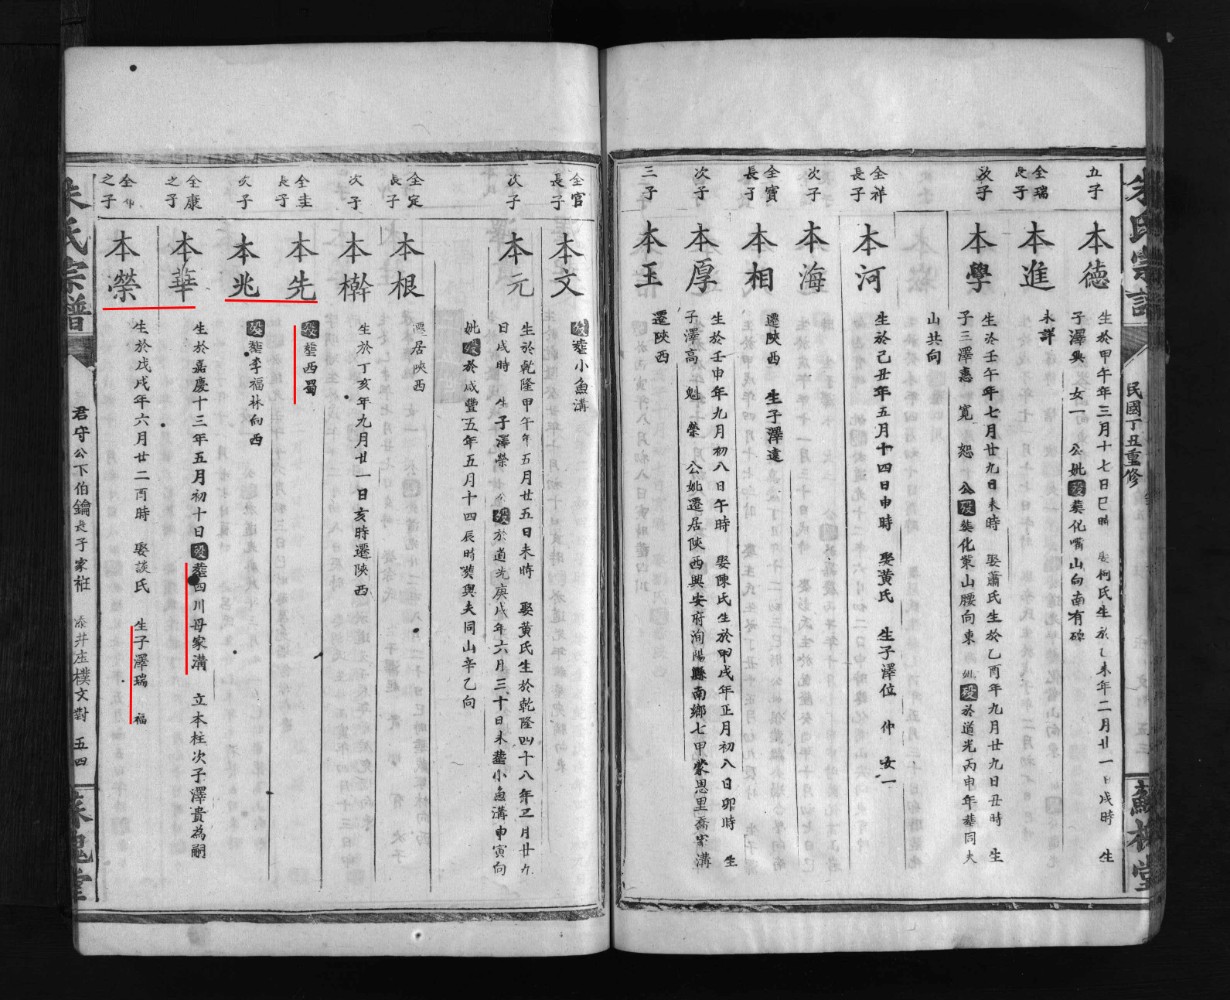 朱氏宗譜
民國丁丑重修
五子
本德
生於甲午年三月十七日巳時 娶柯氏生於乙未年二月廿一日戌時 生
子澤興 女一 公妣歿葬化嘴山向南有碑
全瑞
長子
本進
未詳
次子
本學
生於壬午年七月廿九日未時 娶蕭氏生於乙酉年九月廿九日丑時 生
子三澤惠 寬 恕 公歿葬化葉山腰向東 妣歿於道光丙申年葬同夫
山共向
全祥
長子
本河
生於己丑年五月十四日申時 娶黃氏 生子澤位 仲 女一
次子
本海
全寳
長子
本相
遷陝西 生子澤遠
次子
本厚
生於壬申年九月初八日午時 娶陳氏生於甲戌年正月初八日卯時 生
子澤高 魁 榮 公妣遷居陝西興安府洵陽縣南鄉七甲蒙恩里喬家溝
三子
本玉
遷陝西
全官
長子
本文
歿葬小魚溝
次子
本元
生於乾隆甲午年五月廿五日未時 娶黃氏生於乾隆四十八年三月廿九
日戌時 生子澤榮 公歿於道光庚戌年六月三十日未葬小魚溝申寅向
妣歿於咸豐五年五月十四辰時葬與夫同山辛乙向
全定
長子
本根
遷居陝西
次子
本檊
生於丁亥年九月廿一日亥時遷陝西
全圭
長子
本先
歿葬西蜀
次子
本兆
歿葬李福林向西
全康
之子
本華
生於嘉慶十三年五月初十日歿葬四川母家溝 立本柱次子澤貴為嗣
之子
本榮
生於戊戌年六月廿二酉時 娶談氏 生子澤瑞 福
朱氏宗譜
君守公下伯鑰長子家柾
文對 五四